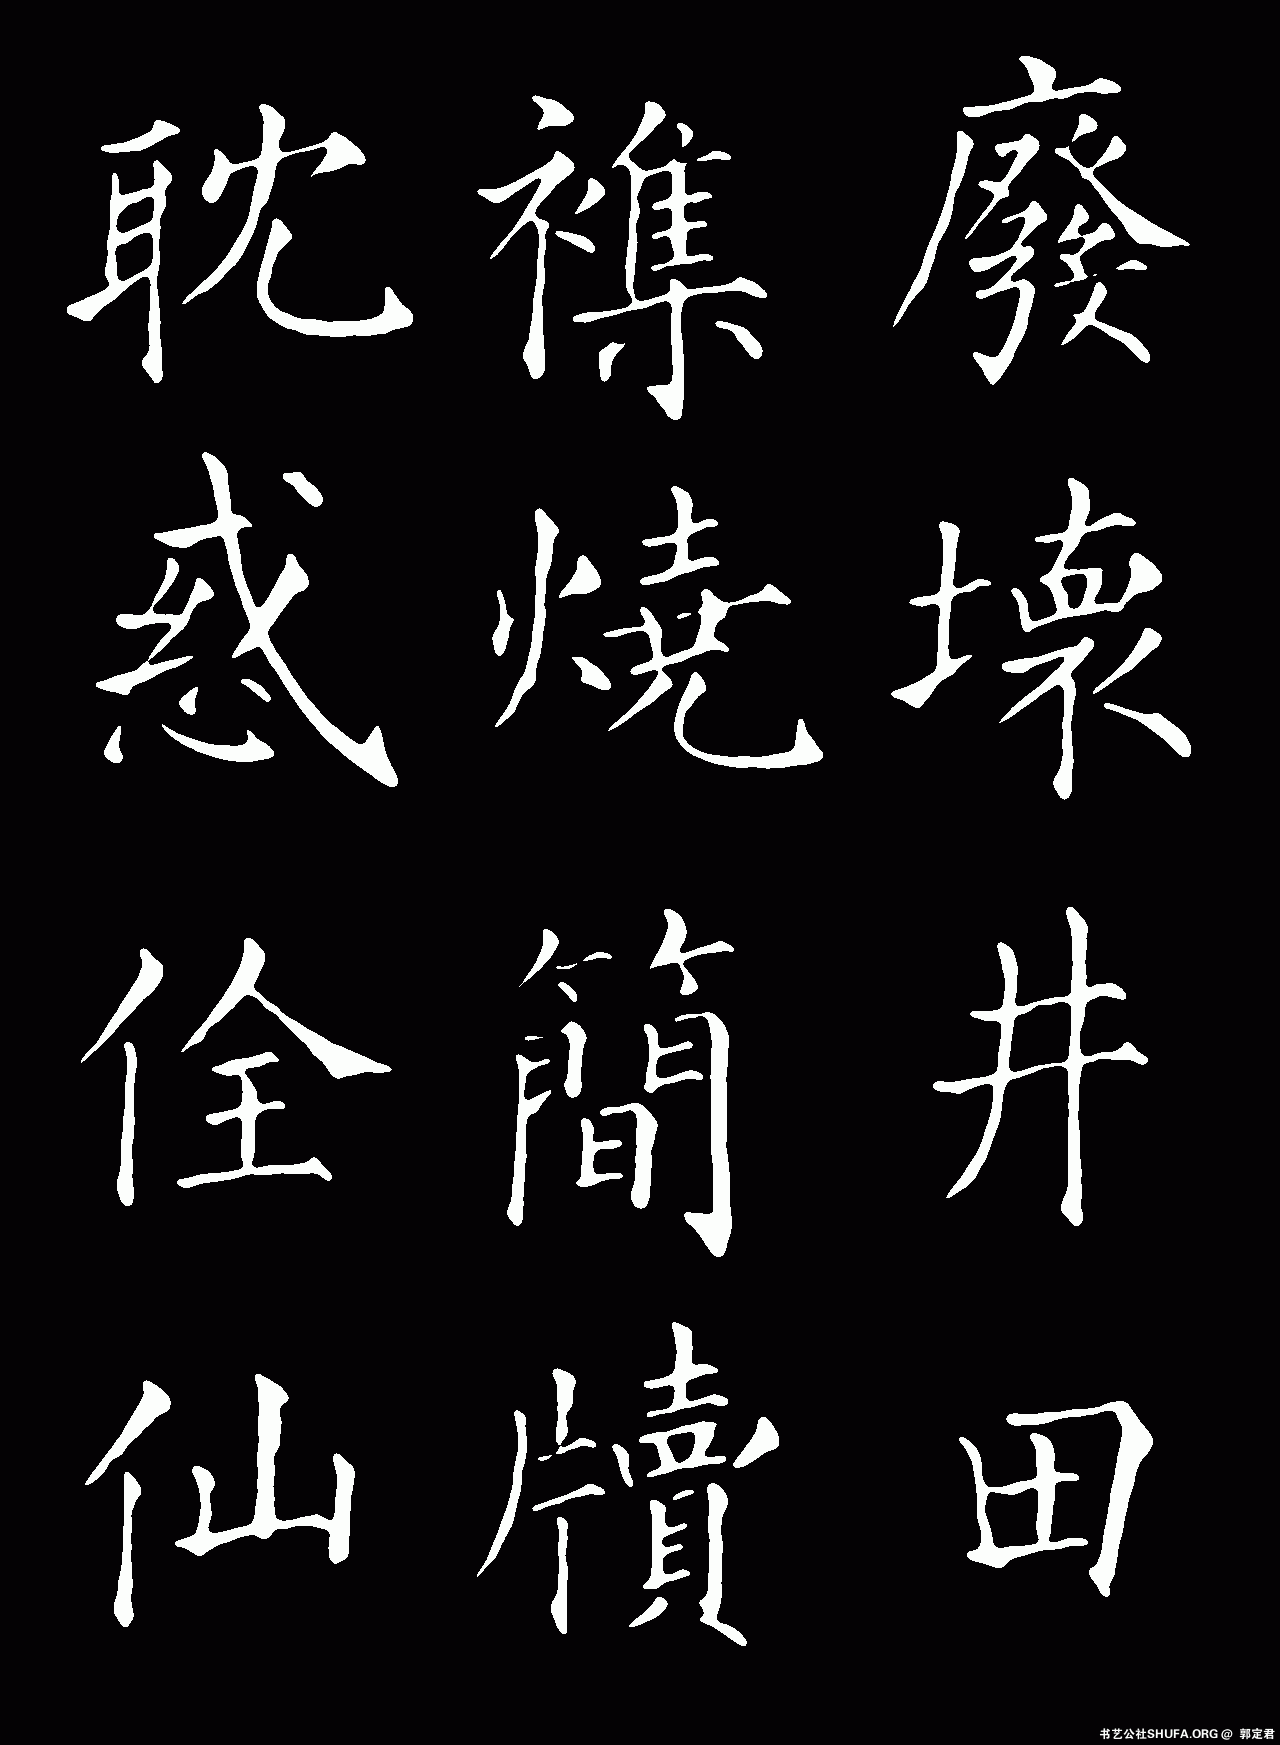 廢壞井田
襍燒簡牘
耽惑佺仙
书艺公社SHUFA.ORG @ 郭定君